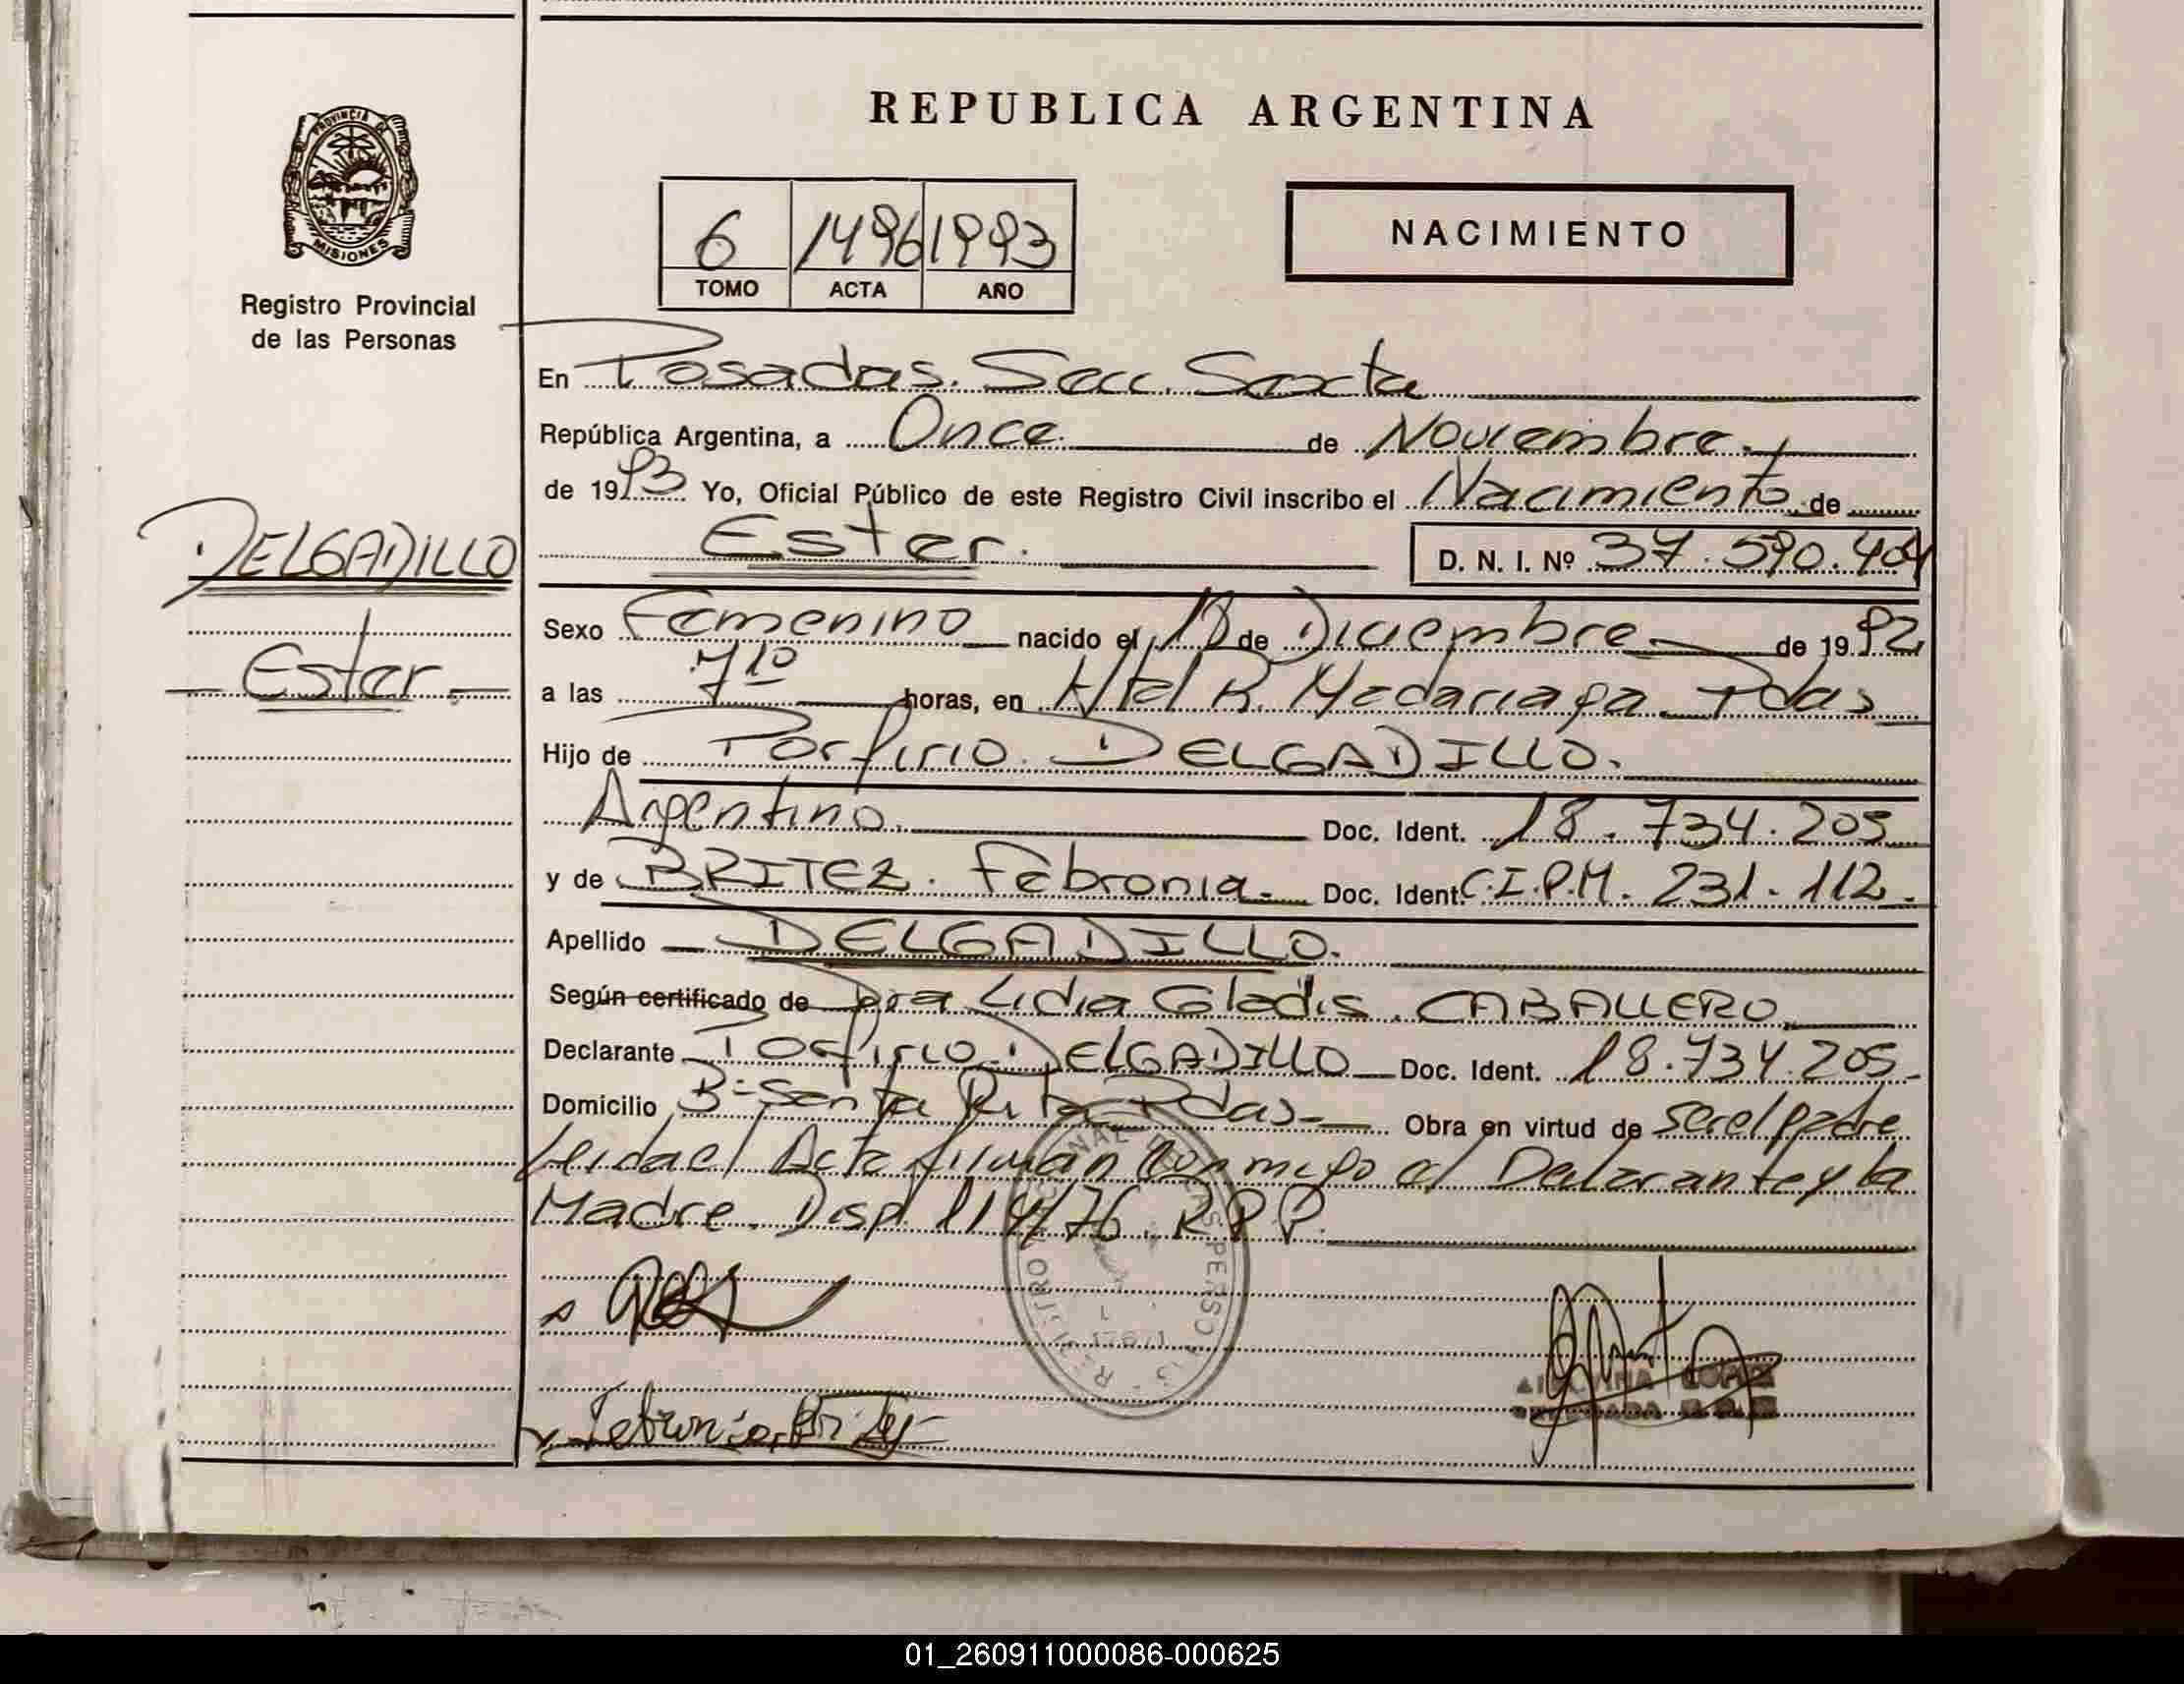 REPUBLICA ARGENTINA
PROVINCIA DE
MISIONES
Registro Provincial
de las Personas
6 1496 1993
TOMO ACTA AÑO
NACIMIENTO
En Posadas. Secc. Sexta
República Argentina, a Once. de Noviembre.
de 1993 Yo, Oficial Público de este Registro Civil inscribo el Nacimiento de
DELGADILLO
Ester.
D. N. I. Nº 37.590.404
Ester.
Sexo Femenino nacido el de Diciembre de 1992
a las 7 10 horas, en Htal R. Madariaga. Pdas
Hijo de Porfirio. DELGADILLO.
Argentino. Doc. Ident. 18.734.205
y de BRITEZ. Febronia. Doc. Ident. C.I.P.M. 231.112.
Apellido DELGADILLO.
Según certificado de Dra Lidia Gladis. CABALLERO
Declarante Porfirio. DELGADILLO Doc. Ident. 18.734.205.
Domicilio Bº Santa Rita Pdas- Obra en virtud de ser el padre
Leida el Acta firman conmigo el Declarante y la
Madre. Disp 114/76. R.P.P.
Febronia Britez
01_260911000086-000625